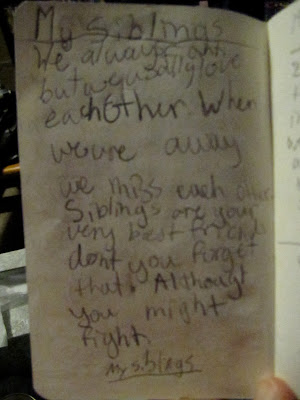 My Siblings
We always
but we really love
each other when
we are away
we miss each other
Siblings are your
very best friends
dont you forget
that. Although
you might
fight.
my siblings